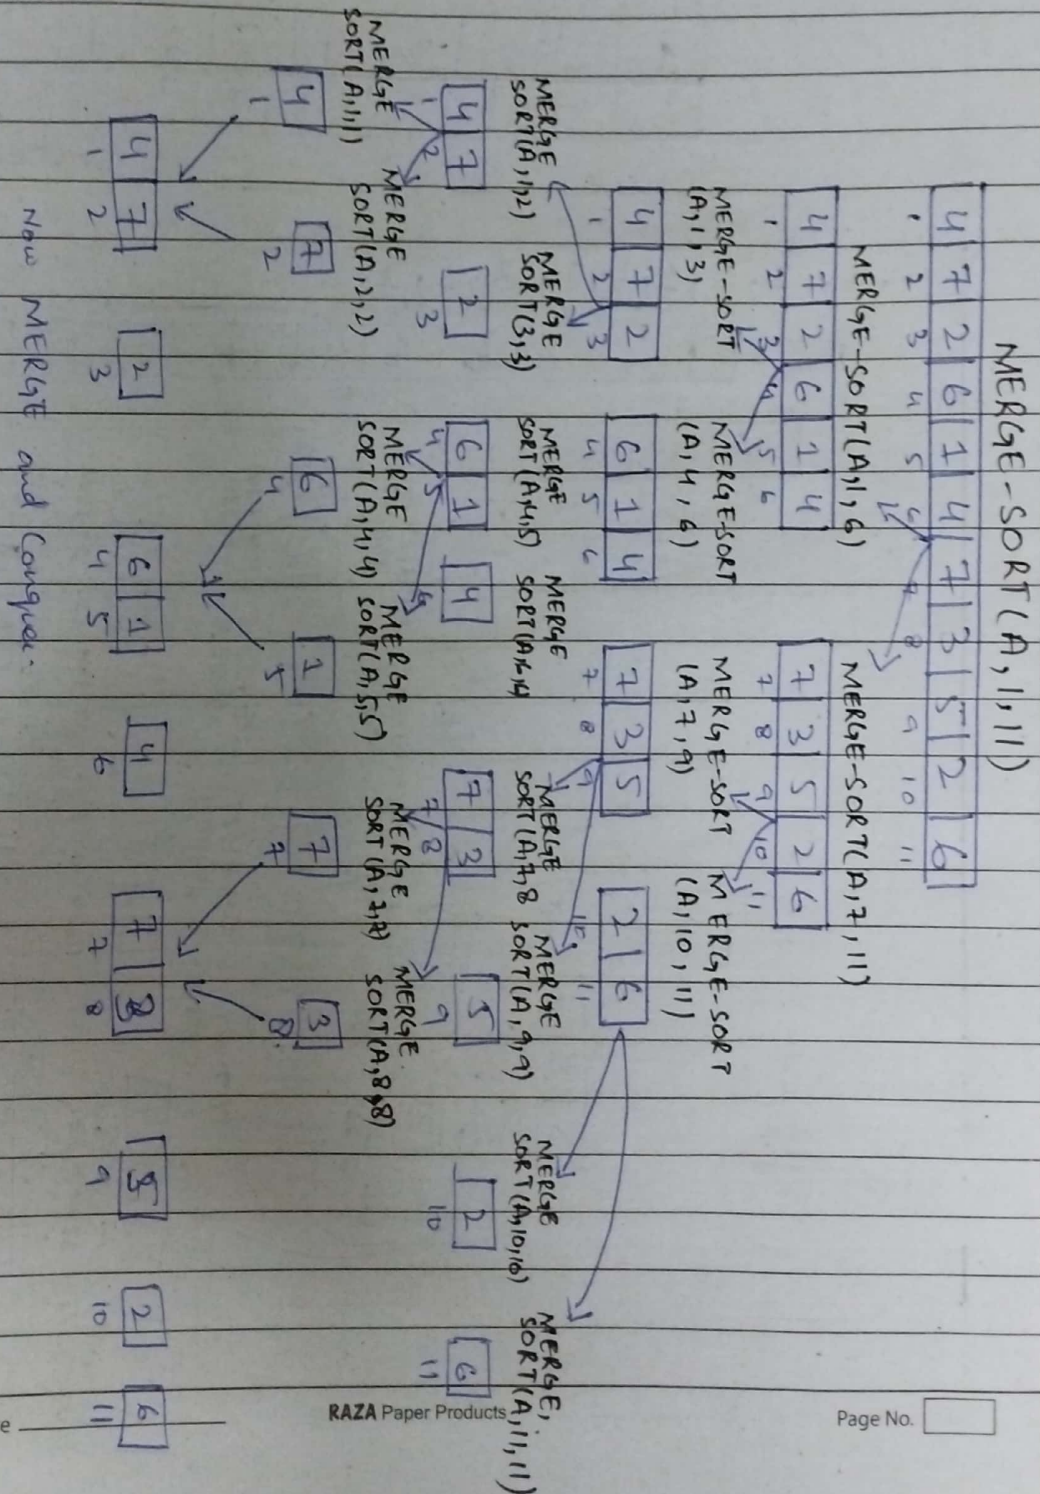 MERGE-SORT(A,1,11)
4 7 2 6 1 4 7 3 5 2 6
1 2 3 4 5 6 7 8 9 10 11
MERGE-SORT(A,1,6) MERGE-SORT(A,7,11)
4 7 2 6 1 4 7 3 5 2 6
1 2 3 4 5 6 7 8 9 10 11
MERGE-SORT (A,1,3) MERGE-SORT (A,4,6) MERGE-SORT (A,7,9) MERGE-SORT (A,10,11)
4 7 2 6 1 4 7 3 5 2 6
1 2 3 4 5 6 7 8 9 10 11
MERGE SORT(A,1,2) MERGE SORT(3,3) MERGE SORT(A,4,5) MERGE MERGE SORT(A,7,8 MERGE SORT(A,9,9) MERGE SORT(A,10,10) MERGE, SORT(A,11,11)
4 7 2 6 1 4 7 3 5 2 6
1 2 3 4 5 7 8 9 10 11
MERGE SORT(A,1,1) MERGE SORT(A,2,2) MERGE SORT(A,4,4) MERGE SORT(A,5,5) MERGE SORT(A,7,7) MERGE SORT(A,8,8)
4 7 6 1 7 3
1 2 4 5 7 8
4 7 2 6 1 4 7 3 5 2 6
1 2 3 4 5 6 7 8 9 10 11
Now MERGE and Conquer:
Page No.
RAZA Paper Products
e